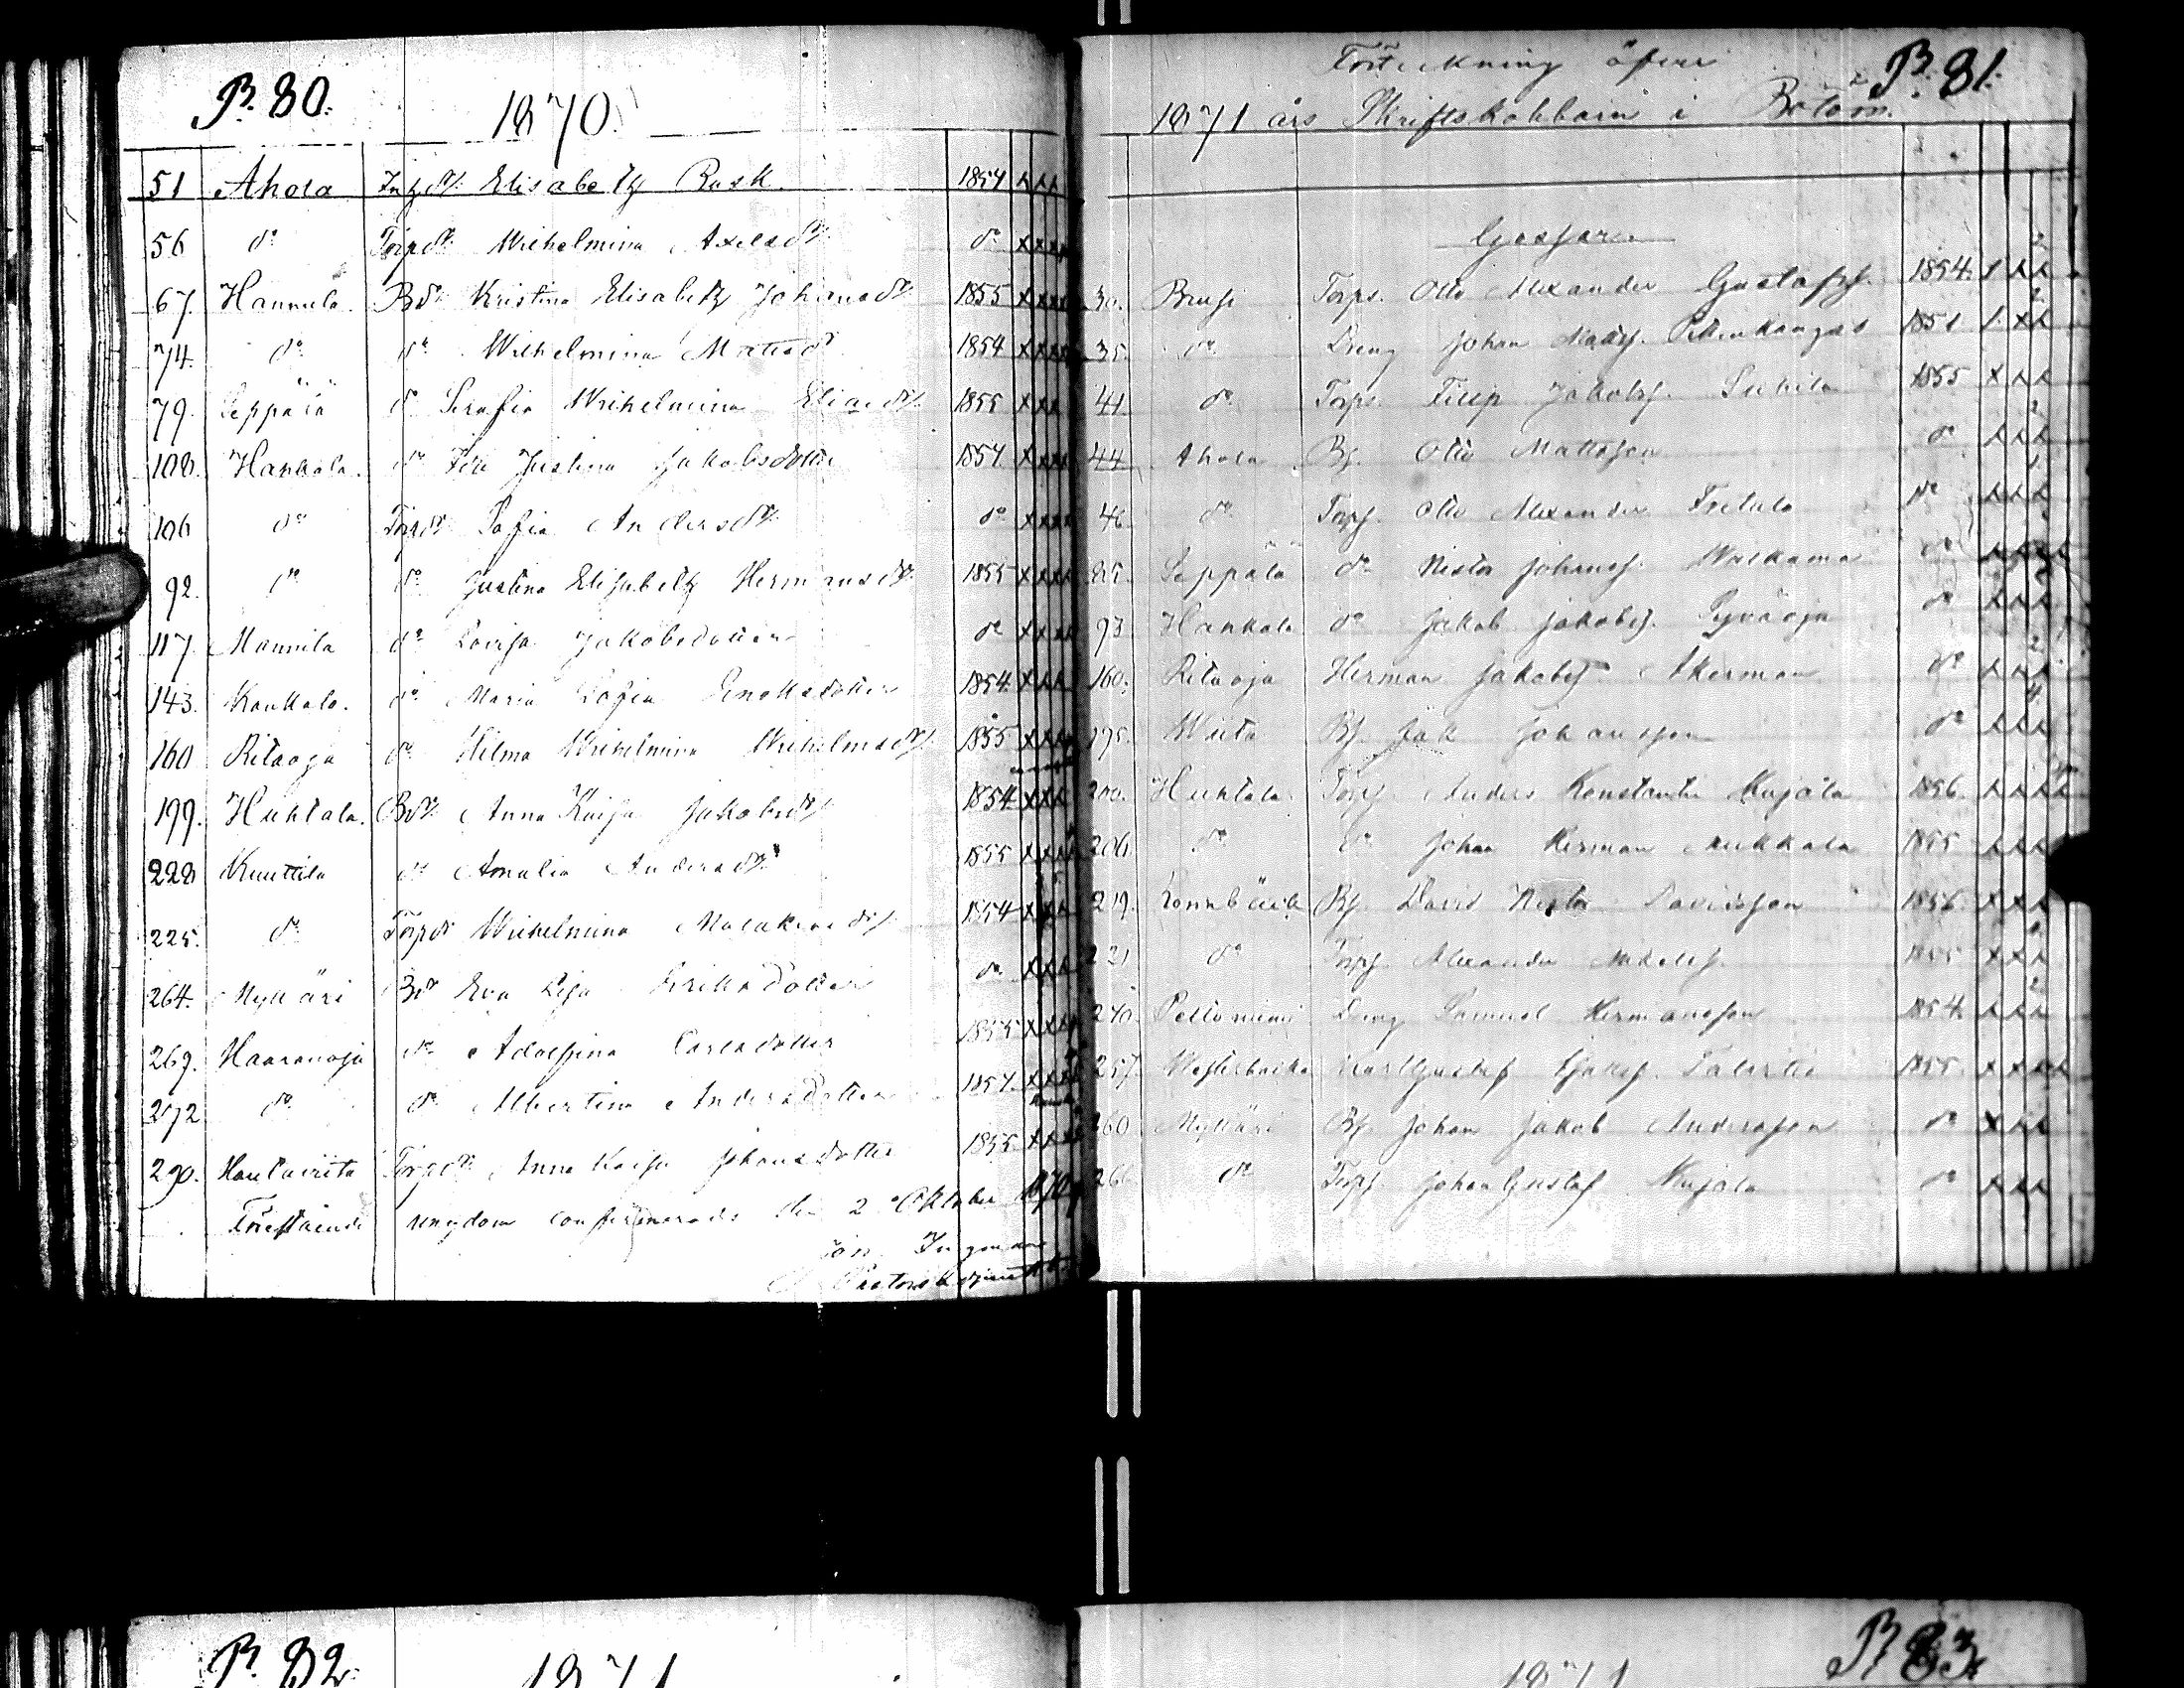 P. 80.
1870.
51 Ahola Elisabeth Rask 1854 xxx
56 do Torpdr. Wilhelmina Axelsdr. do xxxx
67. Hannula. Bdr. Kristina Elisabeth Johansdr. 1855 xxxx
74. do do Wilhelmina Mattsdr 1854 xxxx
79. Seppälä do Serafia Wilhelmina Eliasdr. 1855 xxx
108. Hankala. do Justina Jakobsdotter 1854 xxxx
106 do Torpdr Sofia Andersdr. do xxxx
92. do do Justina Elisabeth Hermansdr. 1855 xxxx
117. Mannila do Lovisa Jakobsdotter do xxxx
143. Kaukalo. do Maria Sofia Enoksdotter 1854 xxx
160 Ritaoja do Hilma Wilhelmina Wilhelmsdr. 1855 xxxx
199. Huhtala. Bdr. Anna Kaisa Jakobsdr. 1854 xxx
228 Kuuttila do Amalia Andersdr. 1855 xxxx
225. do Torpdr Wilhelmina 1854 xxx
264. Mylläri Bdr Eva Lisa Eriksdotter do xxx
269. Haaranoja do Adolfina Carlsdotter 1855 xxxx
272 do do Albertina Andersdotter 1854. xxxx
290. Hautaviita Torpdr. Anna Kaisa Johansdotter 1855 xxxx
Förestående ungdom confirmerades den 2 Oktober 1870
P. 81.
Förteckning öfver
1871 års Skriftskolbarn i
Gossar
30. Brusi Torps. Otto Alexander Gustafss. 1854.
35. do Dreng Johan Matts. 1851
41. do Torps. Filip Jakobss. 1855 xxx
44 Ahola Bs. Otto Mattsson do xxx
46. do Torps. Otto Alexander do xxx
85. Seppälä do Nestor Johanss. Walkama do
93 Hankala do Jakob Jakobss. Pyräoja do xxx
160. Ritaoja Herman Jakobss. Åkerman do xxx
195. Wiita Bs. Jak Johansson do xxx
200. Huhtala Torps. Anders Konstantin Kujala 1856
206 do do Johan Herman Mikkala 1855 xxx
219. Lönnbäck Bs. David Nestor Davidsson 1856. xxx
221 do Torps. Alexander 1855 xxx
240. Peltoniemi Dreng Samuel Hermansson 1854. xxx
257. Westerbacka Karl Gustaf 1855 xxxx
260 Mylläri Bs. Johan Jakob Andersson do xxx
266 do Torps. Johan Gustaf Kujala do xxx
P. 82.
1871
P. 83.
1871